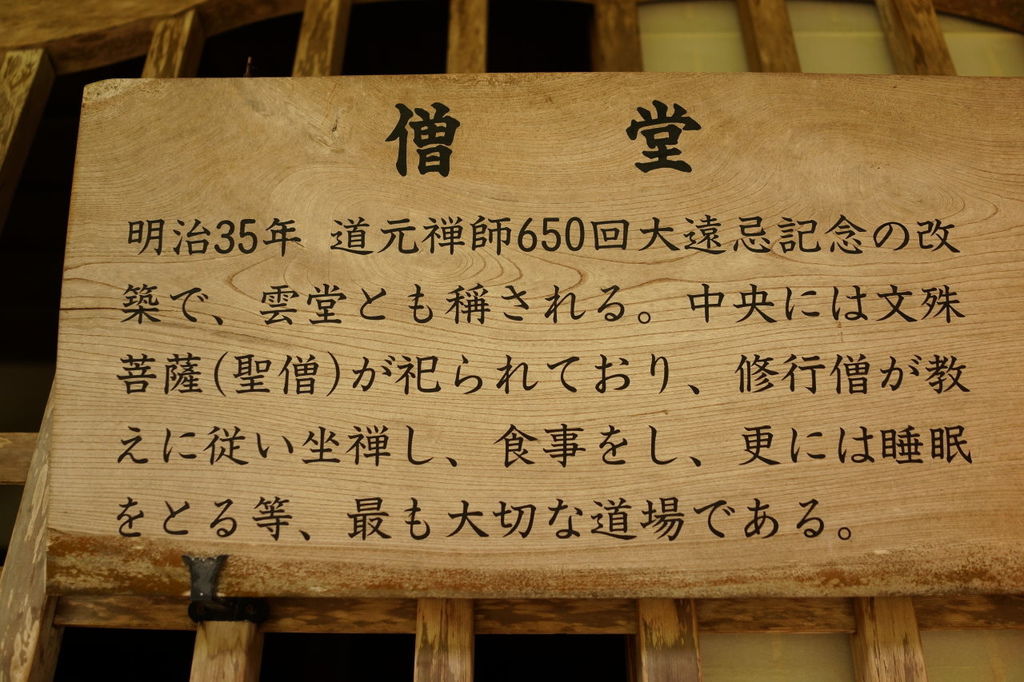 僧堂
明治35年 道元禅師650回大遠忌記念の改
築で、雲堂とも稱される。中央には文殊
菩薩(聖僧)が祀られており、修行僧が教
えに従い坐禅し、食事をし、更には睡眠
をとる等、最も大切な道場である。